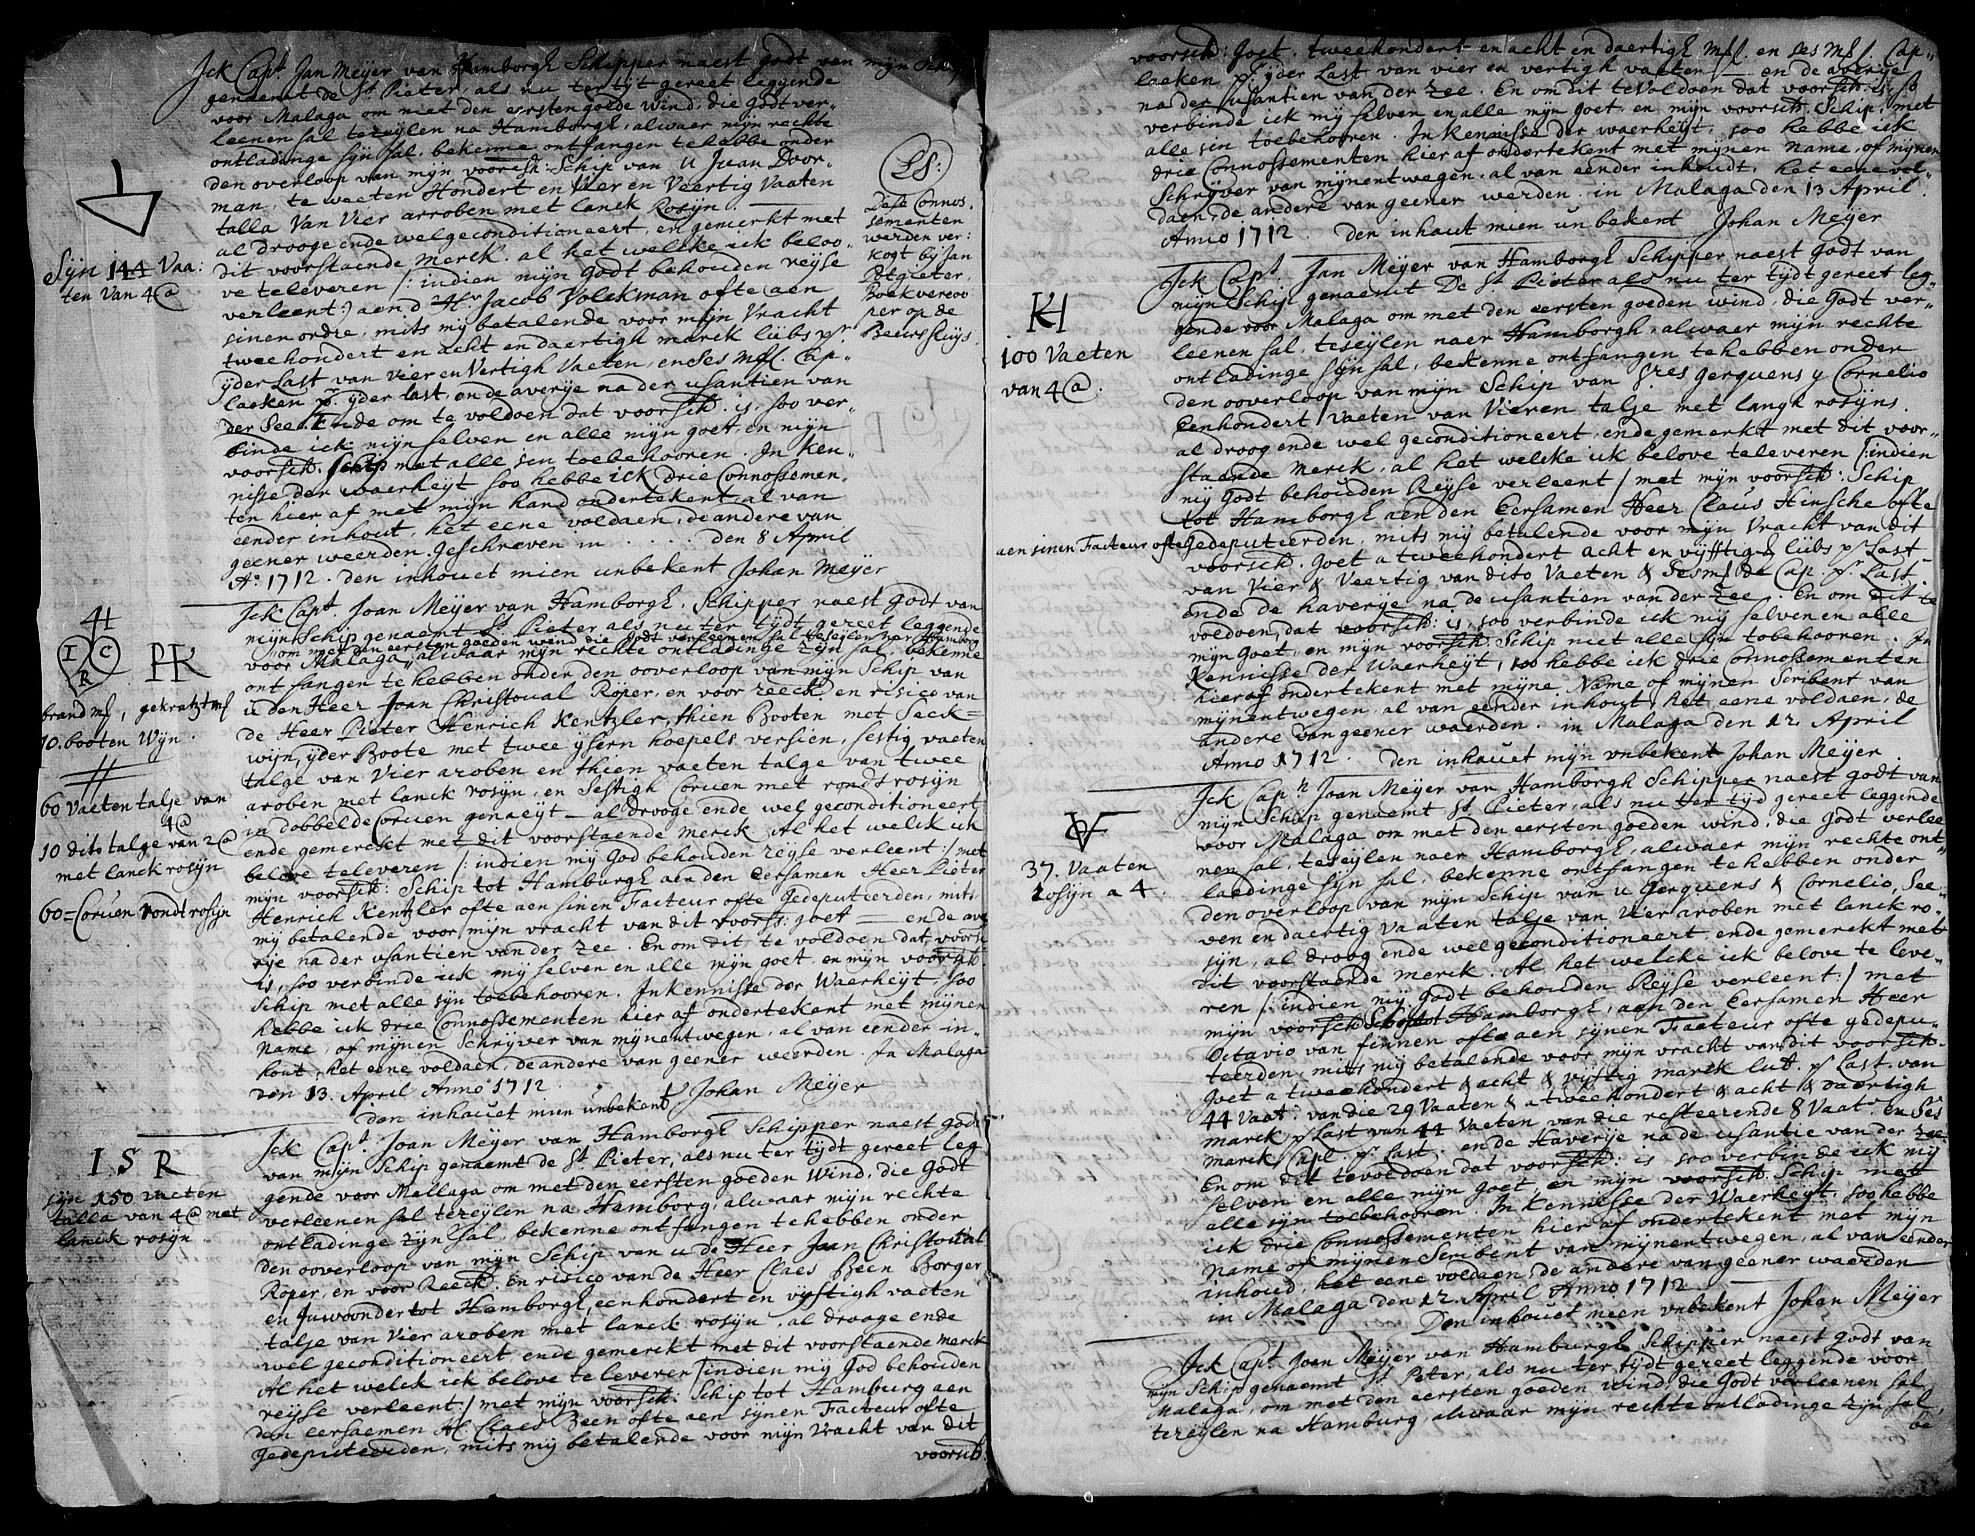 Jck Capt. Jan Meÿer van Hamborgh Schipper naest Godt van mijn Schip
genaemt de St. Pieter, als nu ter tijt gereet leggende
voor Malaga om met den eersten goede wind, die Godt ver-
leenen sal te zeijlen na Hamborgh, alwaer mijn rechte
ontladinge sijn sal, bekenne ontfangen te hebbe onder
den overloop van mijn voorsch: Schip van u Juan Door-
man, te weeten Hondert en Vier en Veertig Vaaten
talla Van Vier arroben met lanck Rosijn.
al drooge ende wel geconditioneert, en gemerkt met
dit voorstaende merck. al het welcke ick beloo-
ve televeren /: indien mijn Godt behouden reijse
verleent:/ aen d Hr. Jacob Volckman ofte aen
sinen ordre, mits mij betalende voor mijn Vracht
tweehondert en acht en daertigh marck lubs pr.
ijder Last van Vier en Vertigh Vaeten, en Ses mß. Cap-
laeken p. ijder last, ende averije na der usantien van
der See. Ende om te voldoen dat voorsch. is, soo ver-
binde ick mijn selven en alle mijn goet, en mijn
voorsch. schip met alle sen toebehooren. In ken-
nisse der waerheijt soo hebbe ick drie Connossemen-
ten hier af met mijn hand ondertekent al van
eender inhout, het eene voldaen, de andere van
geener weerden. Geschreven in . . . . . den 8 April
Ao. 1712. den inhouet mien unbekent Johan Meÿer
LS:
Dese Connos-
sementen
werden ver:
kogt bij Jan
Potgieter,
Boekverkoo
per op de
Beurssluijs
Sijn 144 Vaa:
ten Van 4@
Jck Capt. Joan Meÿer van Hamborgh. Schipper naest Godt van
mijn Schip genaemt St Pieter als nu ter tijdt gereet leggende
om met den eersten goeden wind die Godt verleenen sal te seijlen naer Hamborg
voor Malaga, alwaar mijn rechte ontladinge zijn sal, bekenne
ontfangen te hebben onder den ooverloop van mijn Schip van
u den Heer Joan Christoval Röper, en voor reeck. en risico van
de Heer Pieter Henrich Kentzler, thien Booten met Seck=
wijn, ijder Boote met twee ijsern hoepels versien, sestig vaeten
talge van Vier aroben en thien vaeten talge van twee
aroben met lanck rosijn, en Sestigh Coruen met rondt rosijn
in dobbelde Coruen genaeijt — al drooge ende wel geconditioneert
ende gemerckt met dit voorstaende merck. Al het welck ick
belove televeren /: indien mij God behouden reijse verleent:/ met
mijn voorsch: Schip tot Hamburgh aen den Eersamen Heer Pieter
Henrich Kentzler ofte aen sinen Facteur ofte Gedeputeerden, mits
mij betalende voor mijn vracht van dit voorss: goet — ende ave
rije na der usantien van der zee. En om dit te voldoen dat voorsch
is, soo verbinde ick mij selven en alle mijn goet, en mijn voorsch.
Schip met alle sijn toebehooren. In kennisse der Waerheijt, soo
hebbe ick drie Connossementen hier af ondertekent met mijnen
Name, of mijnen Schrijver van mijnentwegen, al van eender in-
hout, het eene voldaen, de andere van geener weerden. In Malaga
den 13. April Anno 1712.
den inhouet mien unbekent Johan Meÿer
4
I C
R
PHK
brand mß, gekratzt mß
10. booten Wijn.
60 Vaeten talje van
4@
10 dito talge van 2@
met lanck rosijn
60=Coruen rondt rosijn
Jck Capt. Joan Meÿer van Hamborgh Schipper naest Godt
van mijn Schip genaemt de St. Pieter, als nu ter tijdt gereet leg
gende voor Mallaga om met den eersten goeden Wind, die Godt
verleenen sal te zeijlen na Hamborg, alwaer mijn rechte
ontladinge zijn sal, bekenne ontfangen te hebben onder
den ooverloop van mijn Schip van u de Heer Joan Christoual
Röper, en voor Reeck. En risico van de Heer Claes Been Borger
en Inwoonder tot Hamborgh, eenhondert en vijftigh vaeten
talje van Vier aroben met lanck rosijn, al drooge ende
wel geconditioneert ende gemerkt met dit voorstaende merck
Al het welck ick belove te leveren /: indien mij God behouden
reijse verleent:/ met mijn voorsch: Schip tot Hamburg aen
den eersaemen Hr. Claes Been ofte aen sijnen Facteur ofte
Gedeputeerden, mits mij betalende voor mijn Vracht van dit
voorsch:
I S R
sijn 150 vaeten
talla van 4@ met
lanck rosijn
voorsch: Goet. tweehondert en acht en daertigh mß. en ses mß. Cap-
laeken p. ijder Last van vier en vertigh vaeten /— en de averije
na der usantien van der zee. En om dit te Voldoen dat voorsch: is, so
verbinde ick mij selven en alle mijn goet, en mijn voorsch. Schip, met
alle sin toebehooren. In kennisse der waerheijt, soo hebbe ick
drie Connossementen hier af ondertekent met mijnen name, of mijnen
Schrijver van mijnentwegen, al van eender inhoudt, het eene vol-
daen, de andere van geener werden. in Malaga den 13 April.
Anno 1712. den inhaut mien un bekent Johan Meÿer
Jck Capt. Jan Meÿer van Hamborgh Schipper naest Godt van
mijn Schip genaemt De St Pieter als nu ter tijdt gereet leg-
gende voor Malaga om met den eersten goeden wind, die Godt ver-
leenen sal, te seijlen naer Hamborgh, alwaer mijn rechte
ontladinge sijn sal, bekenne ontfangen te hebben onder
den ooverloop van mijn Schip van Sres Gerquens y Cornelio
Eenhondert Vaeten van Vieren talje met langk rosijns.
al droog ende wel geconditioneert, ende gemerkt met dit voor-
staende Merck, al het welcke ick belove te leveren /: indien
mij Godt behouden Reijse verleent / met mijn voorsch: Schip
tot Hamborgh aen den Eersamen Heer Claus Hinsche ofte
aen sinen Facteur ofte Gedeputeerden, mits mij betalende voor mijn Vracht van dit
voorsch. Goet a tweehondert acht en vijfftigh lubs pr Last
van Vier & Veertig van dito Vaeten & Ses mß de Cap. pr. Last
ende de haverije na de usantien van der zee. En om dit te
voldoen, dat voorsch: is, soo verbinde ick mij selven en alle
mijn goet, en mijn voorsch Schip met alle sijn tobehooren. In
Kennisse den Waerheijt, soo hebbe ick drie Connossementen
hieraf ondertekent met mijne Name of mijnen Scribent van
mijnentwegen, al van eender inhout, het eene voldaen, de
andere van geener waerden. in Malaga den 12 April
Anno 1712. Den inhauet mijn unbekent Johan Meÿer
KH
100 Vaeten
van 4@.
Jck Capn Joan Meÿer van Hamborgh Schipper naest Godt van
mijn Schip genaemt St Pieter, als nu ter tijd gereet leggende
voor Malaga om met den eersten goeden wind, die Godt verlee
nen sal, te seijlen naer Hamborgh, alwaer mijn rechte ont-
laedinge sijn sal, bekenne ontfangen te hebben onder
den overloop van mijn Schip van u Gerquens & Cornelio, See-
ven en daertig Vaaten talje van Vier aroben met lanck ro-
sijn, al droog ende wel geconditioneert, ende gemerckt met
dit voorstaende merck. Al het welcke ick belove te leve-
ren /: indien mij Godt behouden Reijse verleent:/ met
mijn voorsch Schip tot Hamborgh, aen den Eersamen Heer
Octavio van finnen ofte aen sijnen Facteur ofte gedepu-
teerden, mits mij betalende voor mijn vracht van dit voorsch.
goet a tweehondert & acht & vijftig marck lub. pr Last. van
44 Vaat: van die 29 Vaaten & a tweehondert & acht & daertigh
marck pr Last van 44 Vaeten van die resteerende 8 Vaatn en Ses
marck Capl. pr. Last. ende de Haverije na de usantie van der zee
En om dit te voldoen dat voorsch: is soo verbinde ick mij
selven en alle mijn goet en mijn voorsch. Schip met
alle sijn toebehooren. In kennisse der Waerheijt, soo hebbe
ick drie Connossementen hier af ondertekent met mijn
name of mijnen Scribent van mijnentwegen, al van eender
inhoud, het eene voldaen, de andere van geener waerden
in Malaga den 12 April Anno 1712.
Den inhouet meen unbekent Johan Meÿer
37. Vaaten
Rosijn a 4.
Jck Capt. Joan Meÿer van Hamburgh Schipper naest Godt van
mijn Schip genaemt St Peter, als nu ter tijdt gereet leggende voor
Malaga, om met den eersten goeden wind, die Godt verleenen sal
te zeijlen na Hamburg, alwaar mijn rechte ontladinge zijn sal,
be